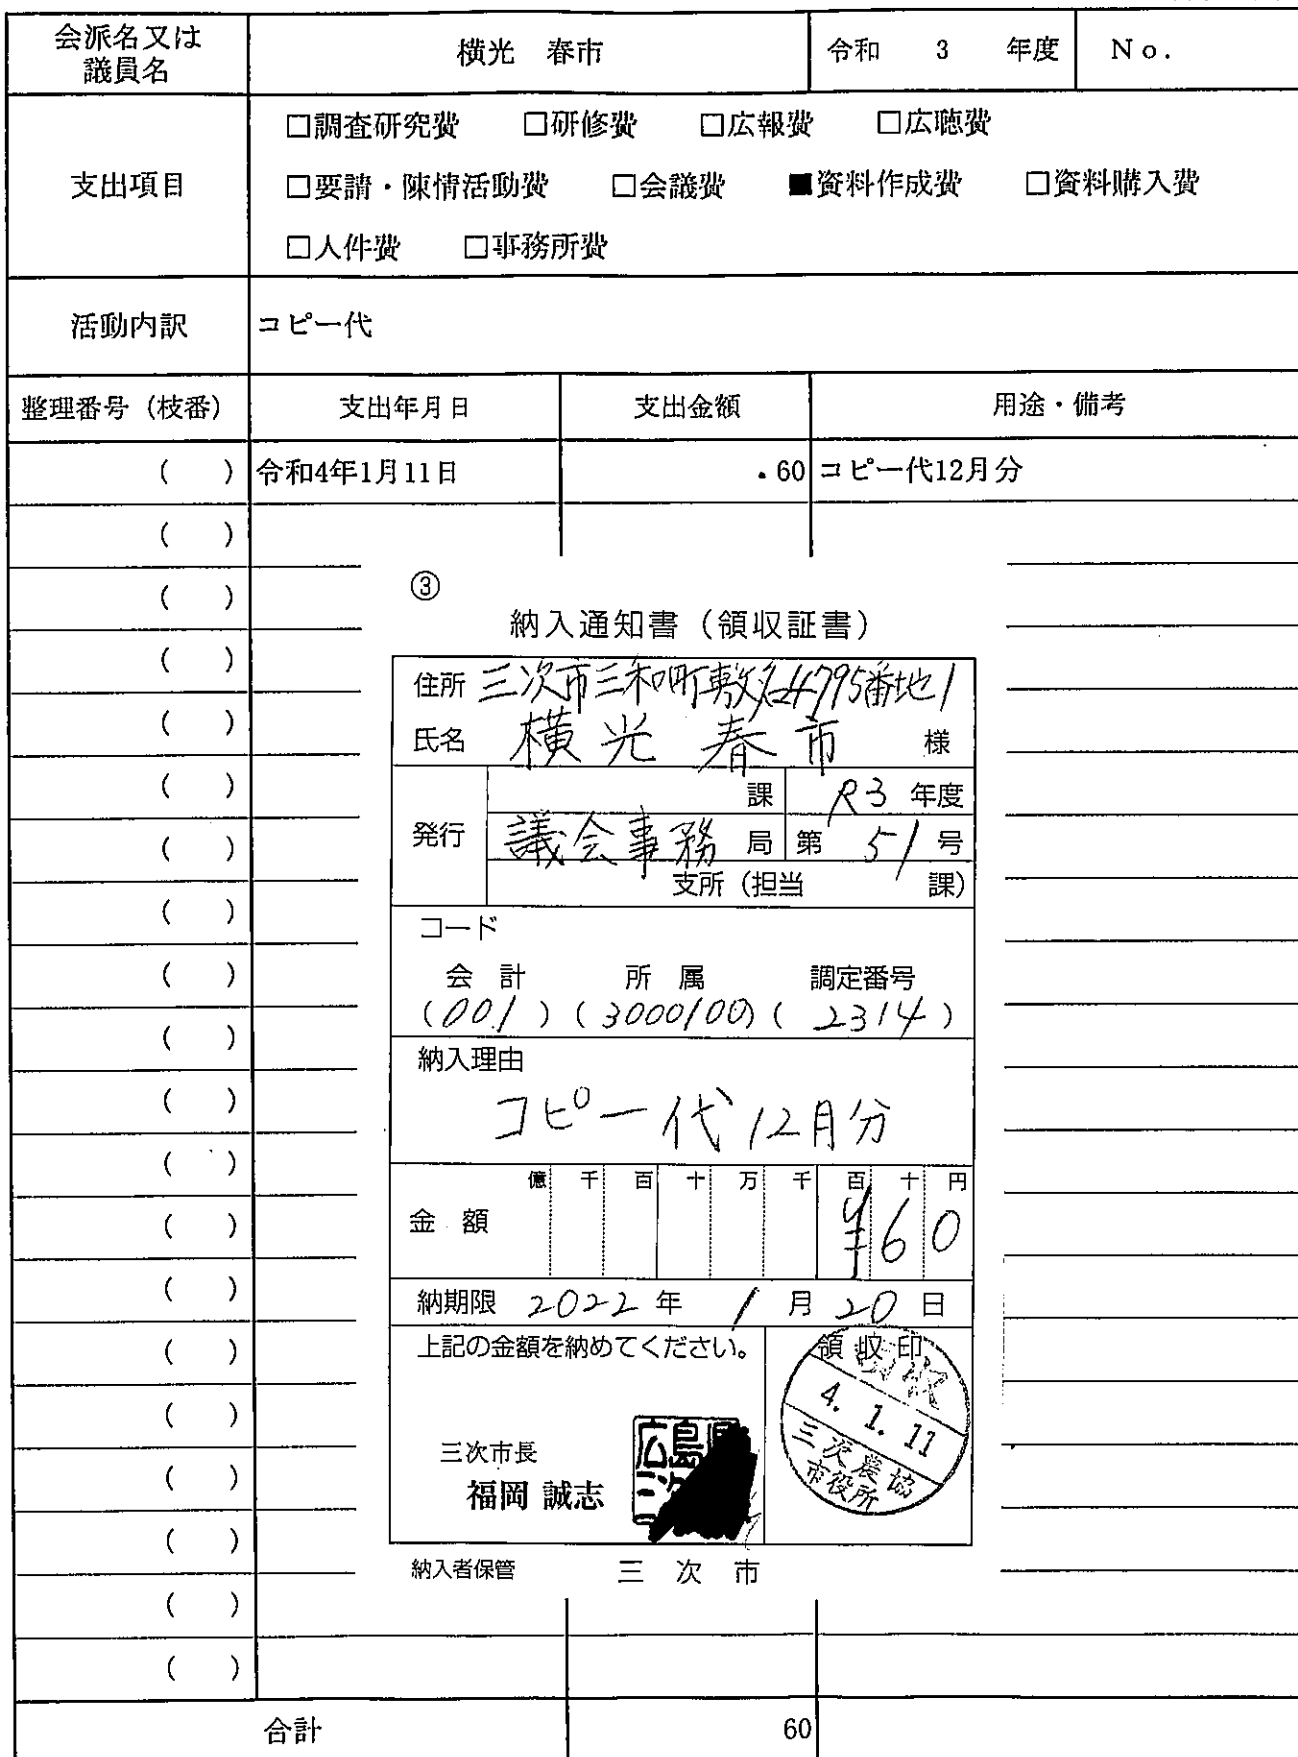 会派名又は
議員名
横光 春市
令和 3 年度
No.
支出項目
□調査研究費 □研修費 □広報費 □広聴費
□要請・陳情活動費 □会議費 ■資料作成費 □資料購入費
□人件費 □事務所費
活動内訳
コピー代
整理番号（枝番） 支出年月日 支出金額 用途・備考
（ ） 令和4年1月11日 .60 コピー代12月分
（ ）
（ ）
（ ）
（ ）
（ ）
（ ）
（ ）
（ ）
（ ）
（ ）
（ ）
（ ）
（ ）
（ ）
（ ）
（ ）
（ ）
（ ）
（ ）
③
納入通知書（領収証書）
住所 三次市三和町敷名4795番地1
氏名 横光 春市 様
発行
課 R3 年度
議会事務 局 第 51 号
支所（担当 課）
コード
会計 所属 調定番号
(001) (3000100) (2314)
納入理由
コピー代 12月分
億 千 百 十 万 千 百 十 円
金額 ¥60
納期限 2022年 1月 20日
上記の金額を納めてください。
領収印
領収
4. 1. 11
三次農協
市役所
三次市長
福岡 誠志
広島
三次
納入者保管 三次市
合計 60